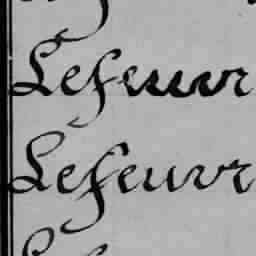 Lefeuvr
Lefeuvr